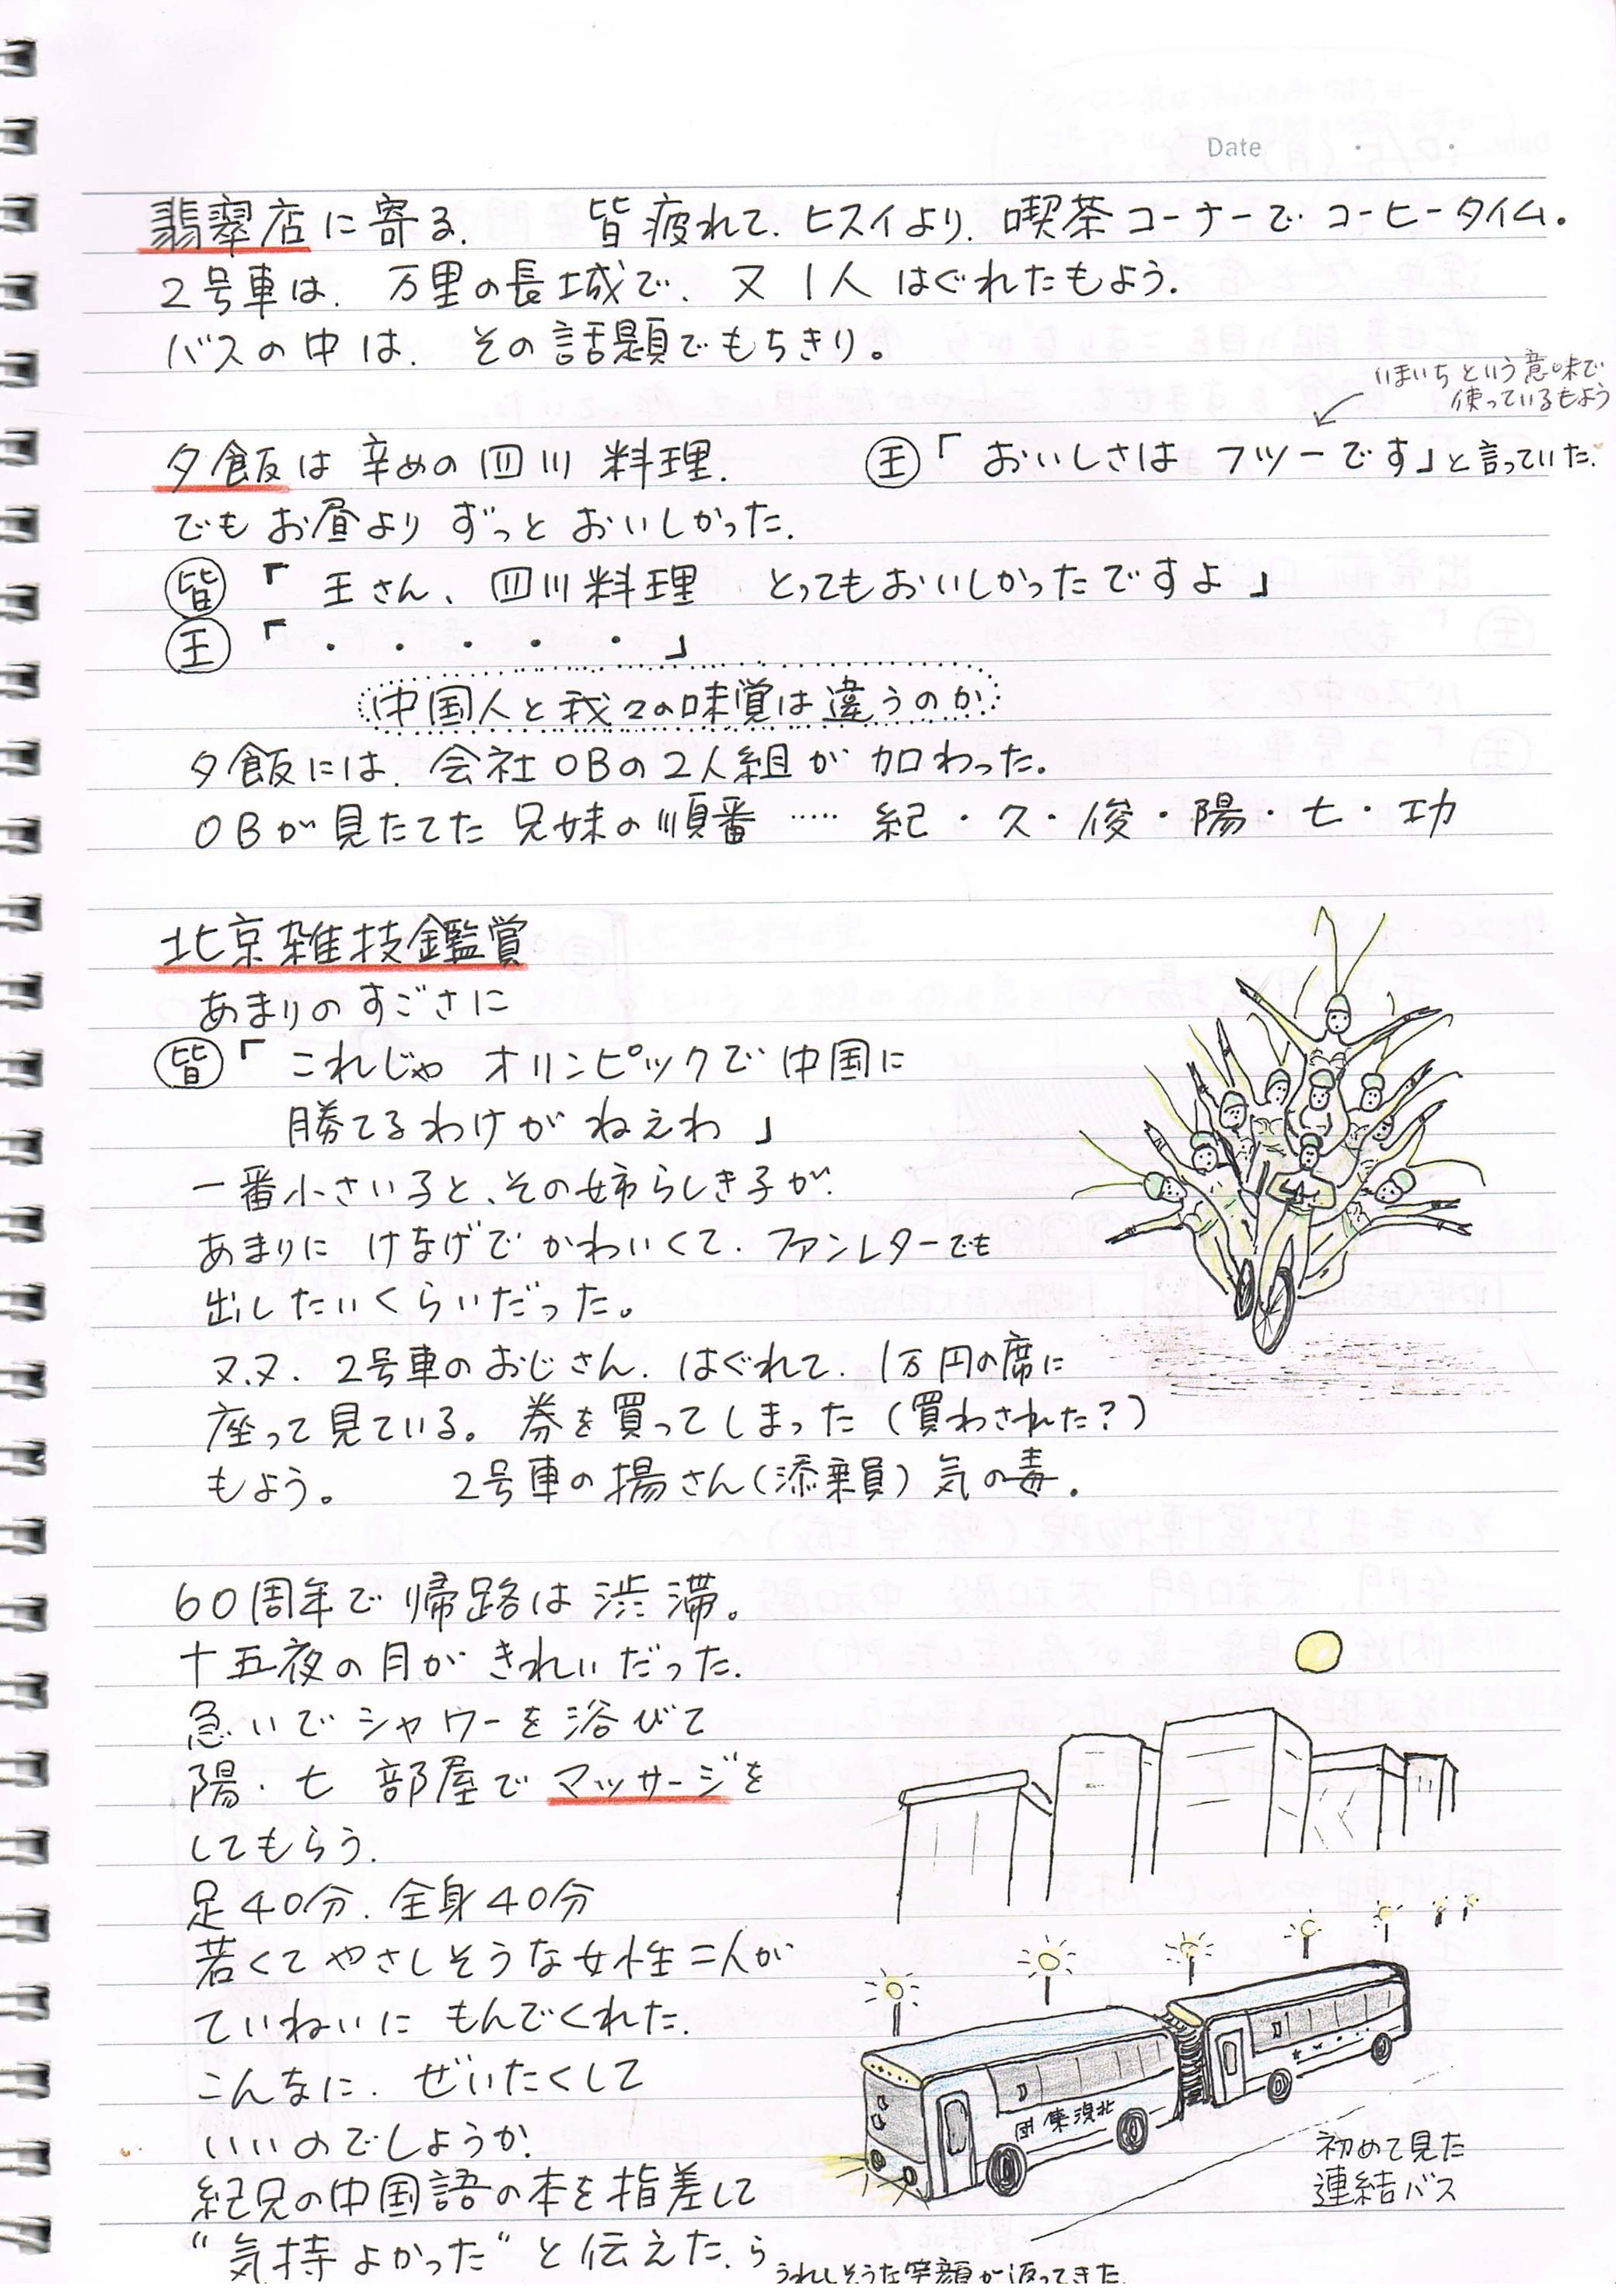 Date
翡翠店に寄る. 皆疲れて. ヒスイより. 喫茶コーナーで コーヒータイム。
2号車は. 万里の長城で. 又 1人 はぐれたもよう.
バスの中は. その話題でもちきり。
いまいち という意味で
使っているもよう
夕飯は 辛めの 四川 料理. 王「 おいしさは フツーです」と言っていた.
でも お昼より ずっと おいしかった.
皆「 王さん、四川料理 とってもおいしかったですよ 」
王「 ・ ・ ・ ・ ・ 」
中国人と我々の味覚は違うのか
夕飯には. 会社OBの2人組が加わった.
OBが見たてた 兄妹の順番 ..... 紀・久・俊・陽・七・功
北京雑技鑑賞
あまりの すごさに
皆「 これじゃ オリンピックで 中国に
勝てるわけが ねえわ 」
一番小さい子と、その姉らしき子が.
あまりに けなげで かわいくて. ファンレターでも
出したいくらいだった。
又.又. 2号車のおじさん. はぐれて. 1万円の席に
座って見ている。券を買ってしまった(買わされた?)
もよう。 2号車の揚さん(添乗員)気の毒.
60周年で 帰路は渋滞。
十五夜の月が きれいだった.
急いで シャワーを浴びて
陽・七 部屋で マッサージを
してもらう.
足40分. 全身40分
若くて やさしそうな女性二人が
ていねいに もんでくれた.
こんなに. ぜいたくして
いいのでしょうか.
紀兄の中国語の本を指差して
"気持よかった"と伝えた.ら
うれしそうな笑顔が返ってきた.
初めて見た
連結バス